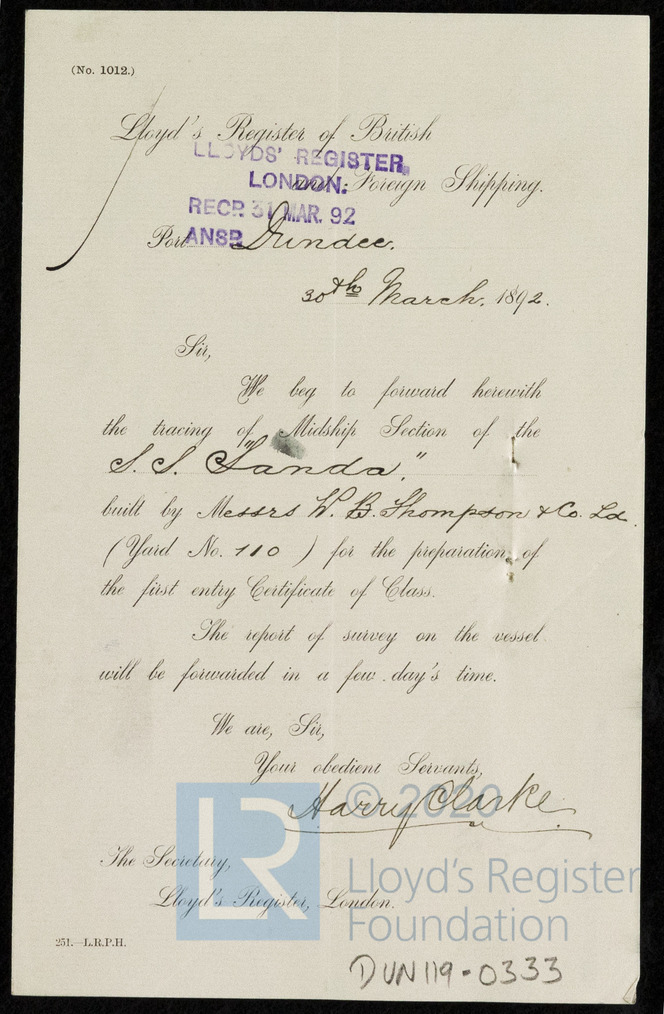 (No. 1012.)
Lloyd's Register of British
and Foreign Shipping.
LLOYDS' REGISTER,
LONDON.
RECP. 31 MAR. 92
ANSP.
Port Dundee.
30th March, 1892.
Sir,
We beg to forward herewith
the tracing of Midship Section of the
S.S. "Sanda."
built by Messrs W. B. Thompson & Co. Ld.
(Yard No. 110) for the preparation of
the first entry Certificate of Class.
The report of survey on the vessel
will be forwarded in a few day's time.
We are, Sir,
Your obedient Servants,
Harry Clarke.
The Secretary,
Lloyd's Register, London.
251.—L.R.P.H.
DUN119-0333
LR
© 2020
Lloyd's Register
Foundation